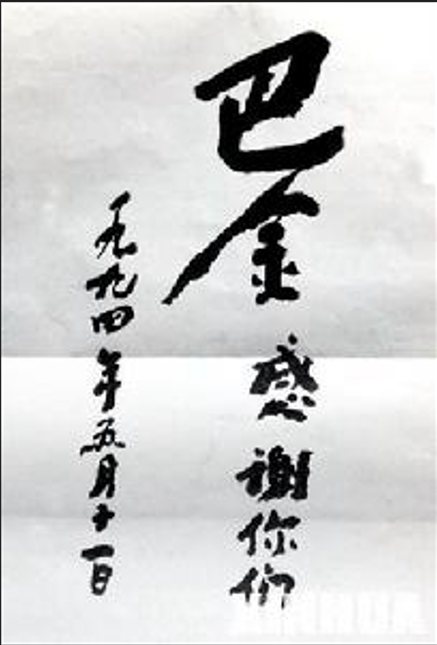 巴金感謝你们
一九九四年五月十一日
XINHUA